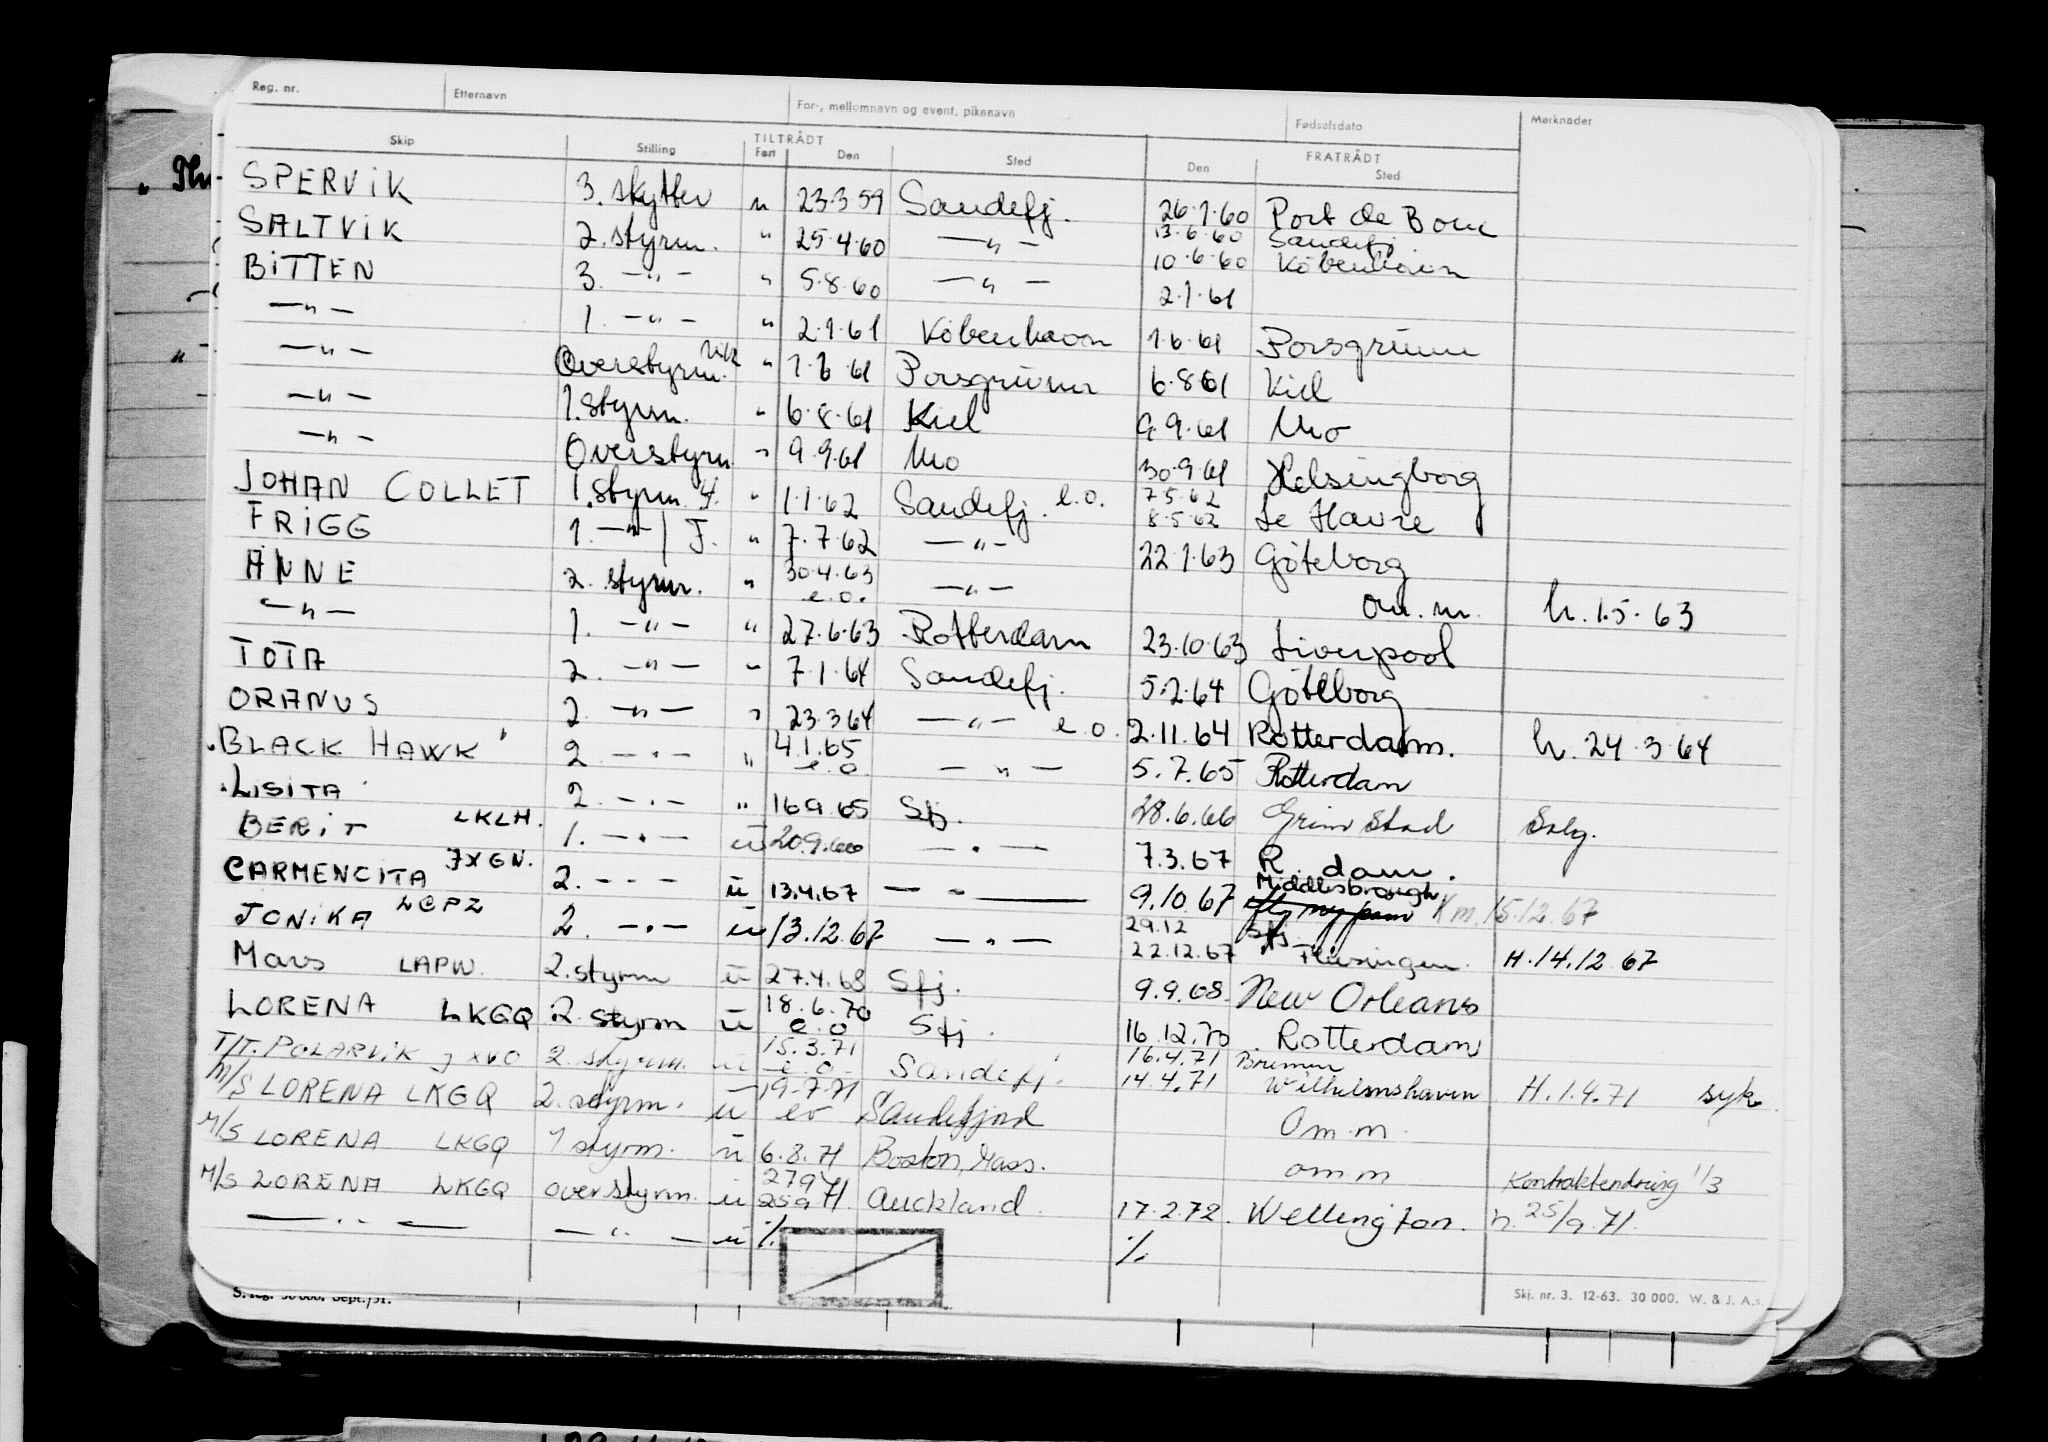 Reg. nr. Etternavn For-, mellomnavn og event. pikenavn Fødselsdato Merknader
TILTRÅDT FRATRÅDT
Skip Stilling Fart Den Sted Den Sted
SPERVIK 3. skytter u 23.3 59 Sandefj. 26.1.60 Port de Bouc
13.6.60 Sandefj
SALTVIK 2. styrm. " 25.4.60 —"— 10.6.60 Köbenhavn
BITTEN 3. —"— " 5.8.60 —"— 2.1.61
—"— 1. —"— " 2.1.61 Köbenhavn 1.6.61 Porsgrunn
—"— Overstyrm. vik " 1.6.61 Porsgrunn 6.8.61 Kiel
—"— 1. styrm. " 6.8.61 Kiel 9.9.61 Mo
—"— Overstyrm " 9.9.61 Mo 30.9.61 Helsingborg
7.5.62
JOHAN COLLET 1. styrm. " 1.1.62 Sandefj. e.o. 8.5.62 Le Havre
FRIGG 1. —"— / J. " 7.7.62 —"— 22.1.63 Göteborg
ANNE 2. styrm. " 30.4.63 e.o. —"— om.m. h. 1.5.63
—"— 1. —"— " 27.6.63 Rotterdam 23.10.63 Liverpool
TOTA 2. —"— " 7.1.64 Sandefj. 5.2.64 Göteborg
ORANUS 2. —"— " 23.3.64 —"— e.o. 2.11.64 Rotterdam. h. 24.3.64
"BLACK HAWK" 2. —"— " 4.1.65 e.o. —"— 5.7.65 Rotterdam
"LISITA" 2. —"— " 16.9.65 Sfj. 28.6.66 Grimstad Solg.
BERIT LKLH. 1. —"— u 20.9.66 —"— 7.3.67 R. dam.
CARMENCITA JXGN. 2. —"— u 13.4.67 —"— 9.10.67 Middlesbrough Km. 15.12.67
29.12 Sfj
JONIKA LCPZ 2. —"— u 13.12.67 —"— 22.12.67 H. 14.12.67
Mars LAPW. 2. styrm u 27.4.68 Sfj. 9.9.68 New Orleans
LORENA LKGQ 2. styrm u 18.6.70 e.o Sfj. 16.12.70 Rotterdam
16.4.71 Bremen
T/T. POLARVIK JXVO 2. styrm. u 15.3.71 e.o. Sandefj. 14.4.71 Wilhelmshaven H. 1.4.71 syk
M/S LORENA LKGQ 2. styrm. u 19-7-71 eo Sandefjord Om.m.
M/S LORENA LKGQ 1 styrm. u 6.8.71 Boston, Mass. om m Kontraktendring 1/3
M/S LORENA LKGQ overstyrm. u 27971 259 71. Auckland. 17.2.72. Wellington. h. 25/9.71.
—"— —"— u % %
S. reg. 30 000. Sept./51.
Skj. nr. 3. 12-63. 30 000. W. & J. A.s.